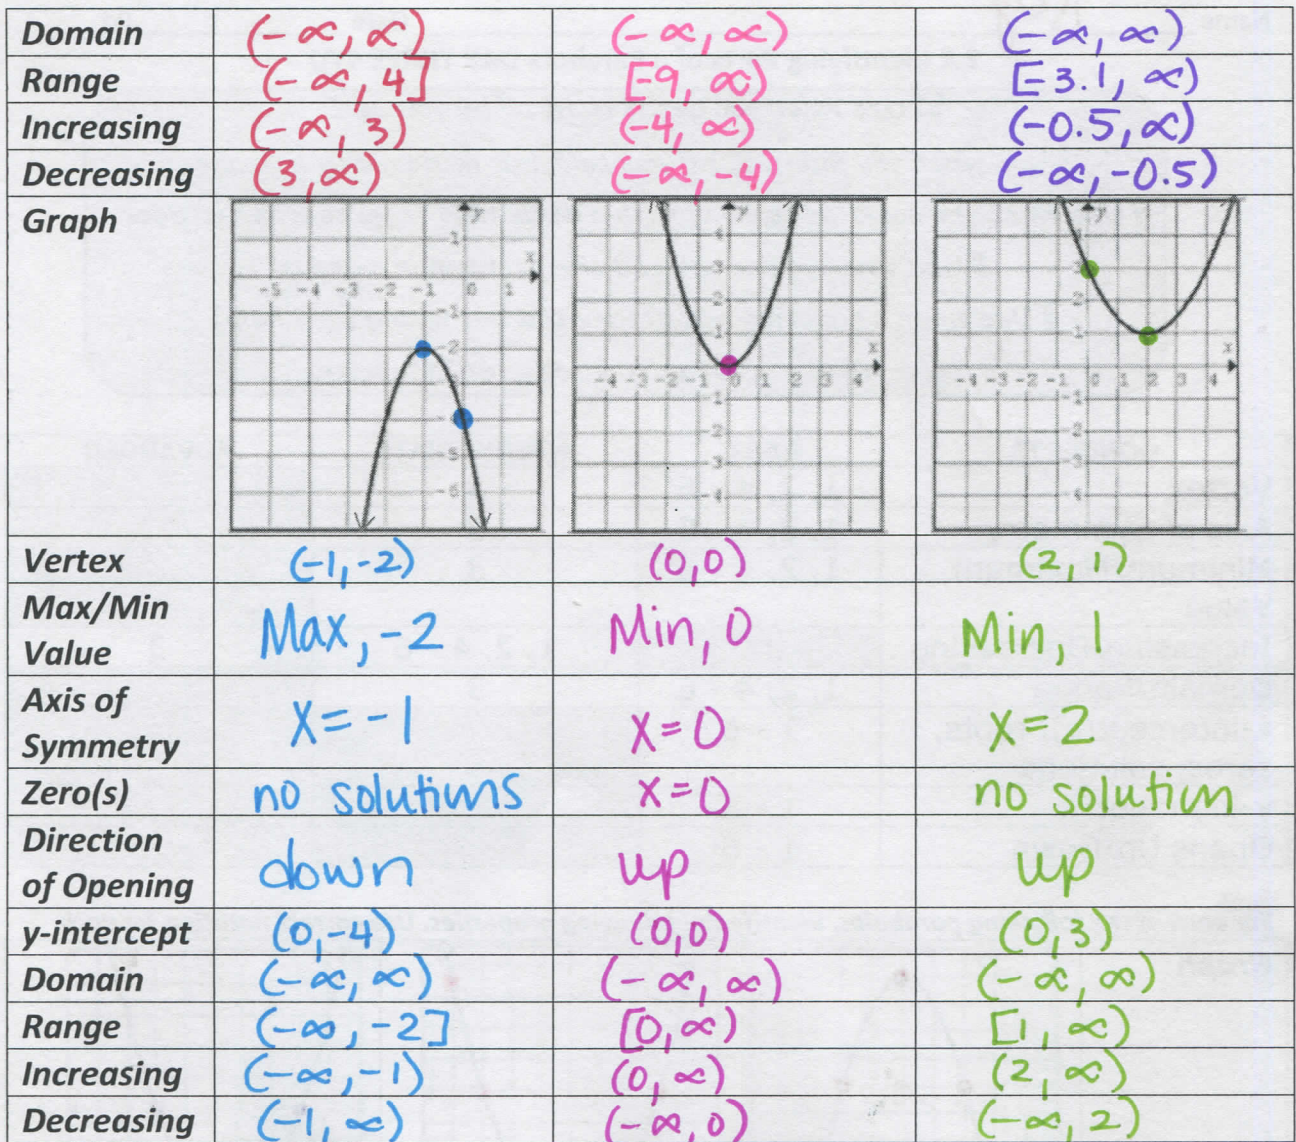 Domain (-∞, ∞) (-∞, ∞) (-∞, ∞)
Range (-∞, 4] [-9, ∞) [-3.1, ∞)
Increasing (-∞, 3) (-4, ∞) (-0.5, ∞)
Decreasing (3, ∞) (-∞, -4) (-∞, -0.5)
Graph
y y y
1 4 4
x 3 3
-5 -4 -3 -2 -1 0 1 2 2
-1 1 1
-2 x x
-4 -3 -2 -1 0 1 2 3 4 -4 -3 -2 -1 0 1 2 3 4
-1 -1
-5 -2 -2
-6 -3 -3
-4 -4
Vertex (-1, -2) (0,0) (2, 1)
Max/Min
Value Max, -2 Min, 0 Min, 1
Axis of
Symmetry x = -1 x = 0 x = 2
Zero(s) no solutions x = 0 no solution
Direction
of Opening down up up
y-intercept (0, -4) (0,0) (0,3)
Domain (-∞, ∞) (-∞, ∞) (-∞, ∞)
Range (-∞, -2] [0, ∞) [1, ∞)
Increasing (-∞, -1) (0, ∞) (2, ∞)
Decreasing (-1, ∞) (-∞, 0) (-∞, 2)